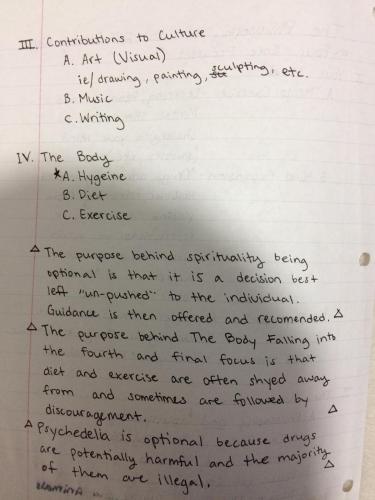 III. Contributions to Culture
A. Art (Visual)
ie/ drawing, painting, sculpting, etc.
B. Music
C. Writing
IV. The Body
*A. Hygeine
B. Diet
C. Exercise
△ The purpose behind spirituality being
optional is that it is a decision best
left "un-pushed" to the individual.
Guidance is then offered and recomended. △
△ The purpose behind The Body Falling into
the fourth and final focus is that
diet and exercise are often shyed away
from and sometimes are followed by
discouragement. △
△ Psychedelia is optional because drugs
are potentially harmful and the majority
of them are illegal. △